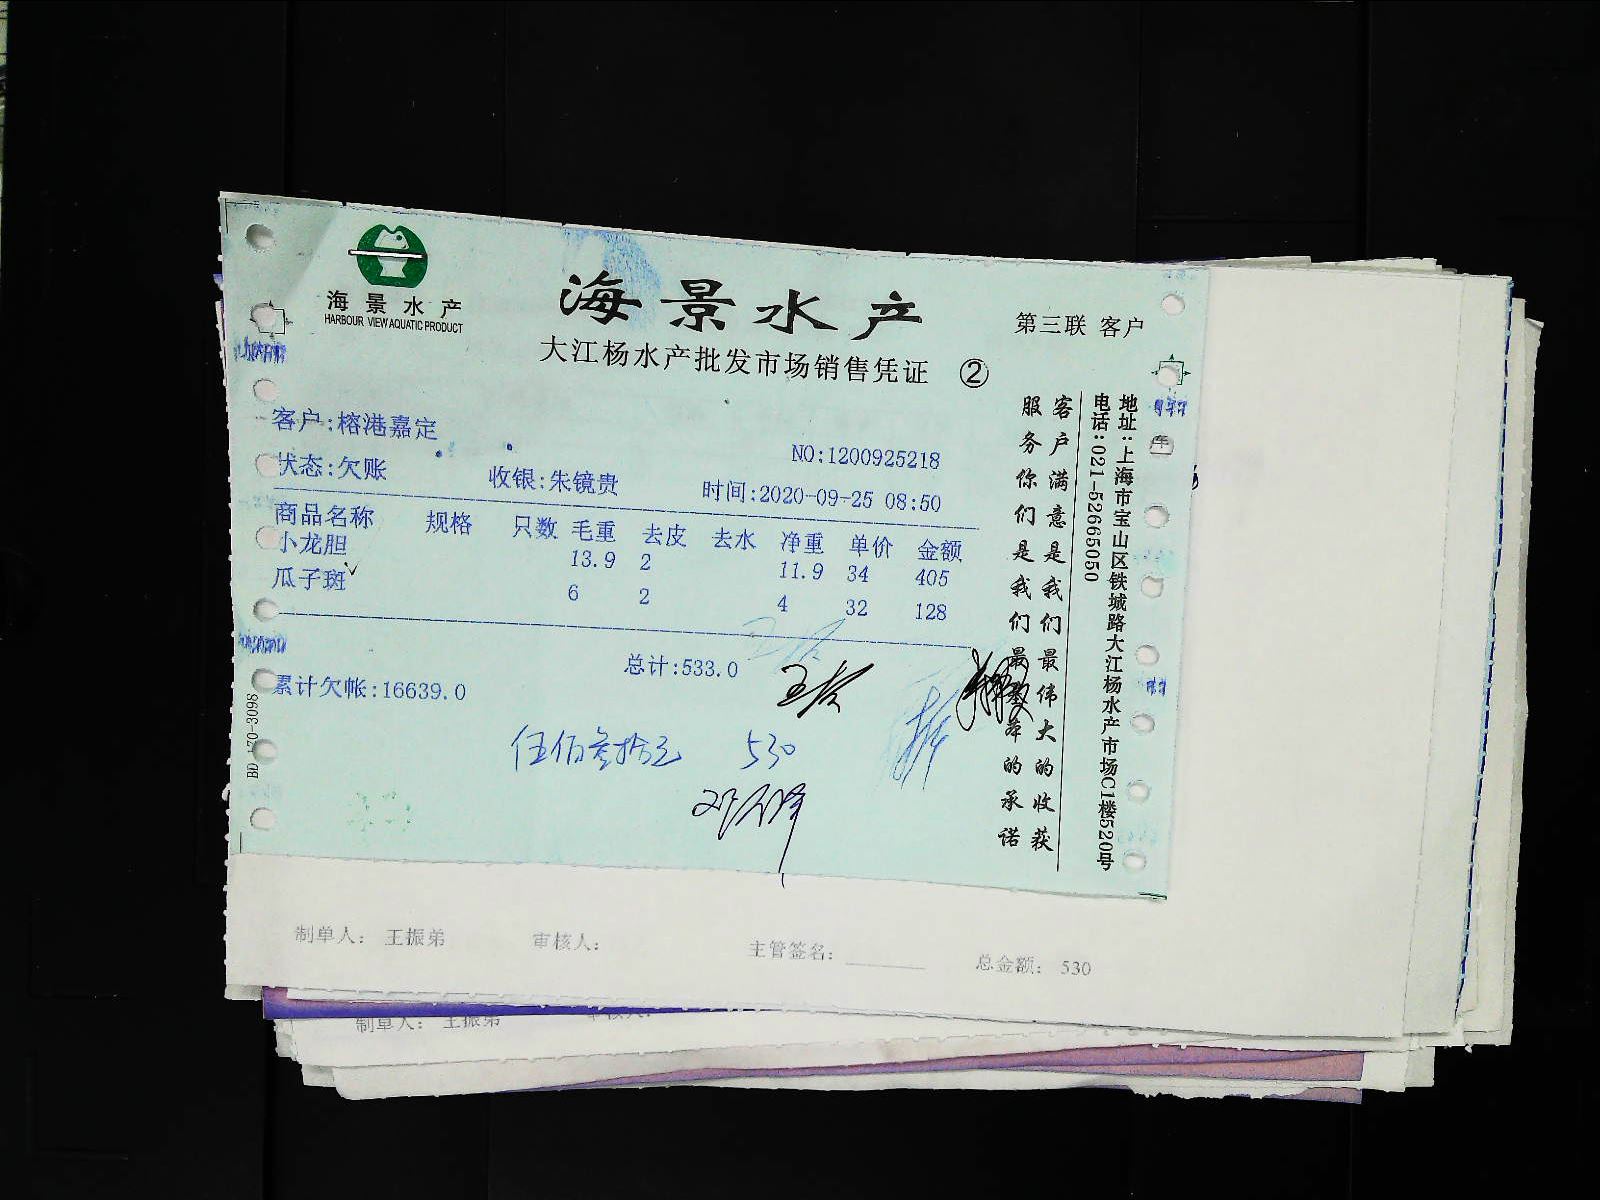 海景水产
HARBOUR VIEW AQUATIC PRODUCT
海景水产
大江杨水产批发市场销售凭证 ②
第三联 客户
客户:榕港嘉定
NO:1200925218
状态:欠账 收银:朱镜贵 时间:2020-09-25 08:50
商品名称 规格 只数 毛重 去皮 去水 净重 单价 金额
小龙胆 13.9 2 11.9 34 405
瓜子斑 6 2 4 32 128
总计:533.0
累计欠帐:16639.0
伍佰叁拾元 530
客户满意是我们最伟大的收获
服务你们是我们最的承诺
地址:上海市宝山区铁城路大江杨水产市场C1楼520号
电话:021-52665050
BD 170-3098
制单人: 王振弟 审核人: 主管签名: 总金额: 530
制单人: 王振弟 审核人: